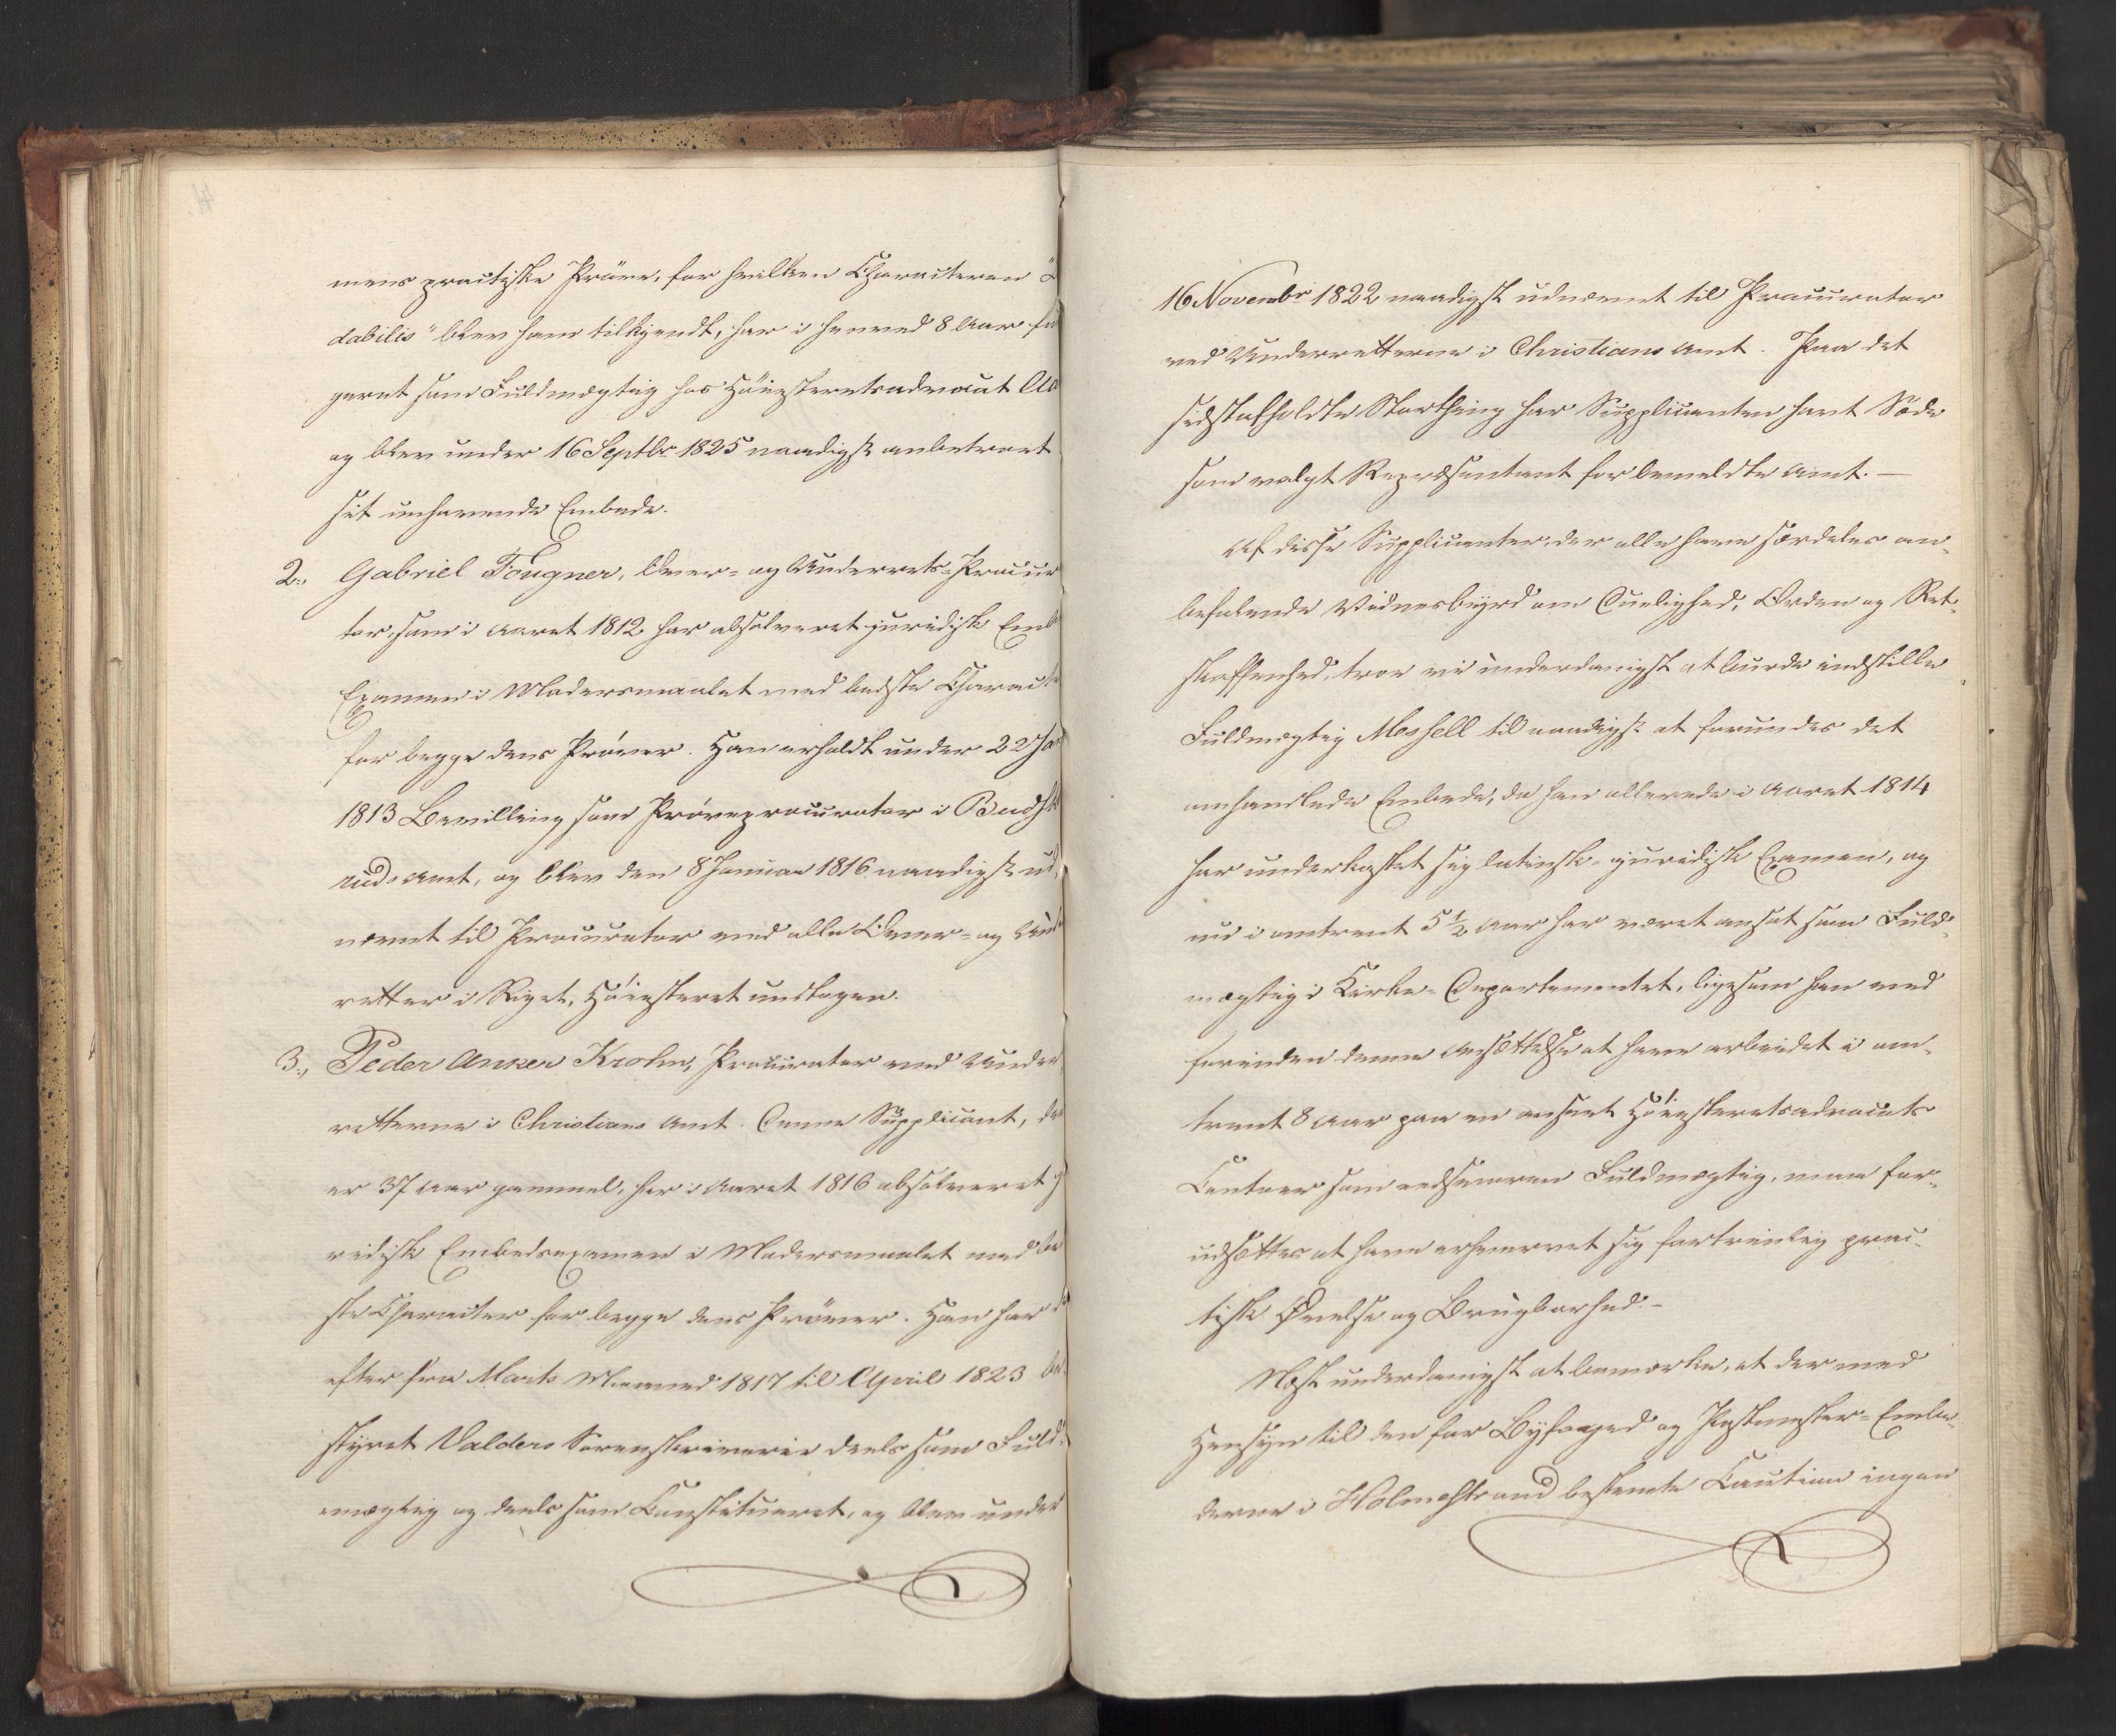 mens practiske Prøve, for hvilken Characteren "L
dabilis" blev ham tilkjendt, har i henved 8 Aar fu
geret som Fuldmægtig hos Høiesteretsadvocat
og blev under 16 Septbr 1825 naadigst anbetroet
sit unhavende Embede.
2., Gabriel Fougner, Over- og Underrets-Procur
tor, som i Aaret 1812 har absolveret juridisk Emb
Examen i Modersmaalet med bedste Characte
for begge dens Prøver. Han erholdt under 22 Ja
1813 Bevilling som Prøveprocurator i Budske
ruds Amt, og blev den 8 Januar 1816 naadigst ud,
nævnt til Procurator ved alle Over- og Und
retter i Riget, Høiesteret undtagen.
3., Peder Anker Krohn, Procurator ved Under
retterne i Christians Amt. Denne Supplicant, de
er 37 Aar gammel, har i Aaret 1816 absolveret j
ridisk Embedsexamen i Modersmaalet med be
ste Characteer for begge dens Prøver. Han har d
efter fra Marts Maaned 1817 til April 1823 be
styret Valders Sorenskriverie deels som Fuld,
mægtig og deels som Constitueret, og blev under
16 Novembr 1822 naadigst udnævnt til Procurator
ved Underretterne i Christians Amt. Paa det
sidstafholdte Storthing har Supplicanten havt Sæde
som valgt Repræsentant for bemeldte Amt. —
Af disse Supplicanter, der alle have særdeles an,
befalende Vidnesbyrd om Duelighed, Orden og Ret,
skaffenhed, troe vi underdanigst at burde indstille
Fuldmægtig Mossell til naadigst at forundes det
omhandlede Embede, da han allerede i Aaret 1814
har underkastet sig latinsk-juridisk Examen, og
nu i omtrent 5 1/2 Aar har været ansat som Fuld,
mægtig i Kirke-Departementet, ligesom han ved
forinden denne Ansættelse at have arbeidet i om,
trent 8 Aar paa en anseet Høiesteretsadvocats
Contoer som edsvoren Fuldmægtig, maa for,
udsættes at have erhvervet sig fortrinlig prac,
tisk Øvelse og Brugbarhed. —
Næst underdanigst at bemærke, at der med
Hensyn til den for Byfoged og Postmester-Embe,
derne i Holmestrand bestemte Caution ingen